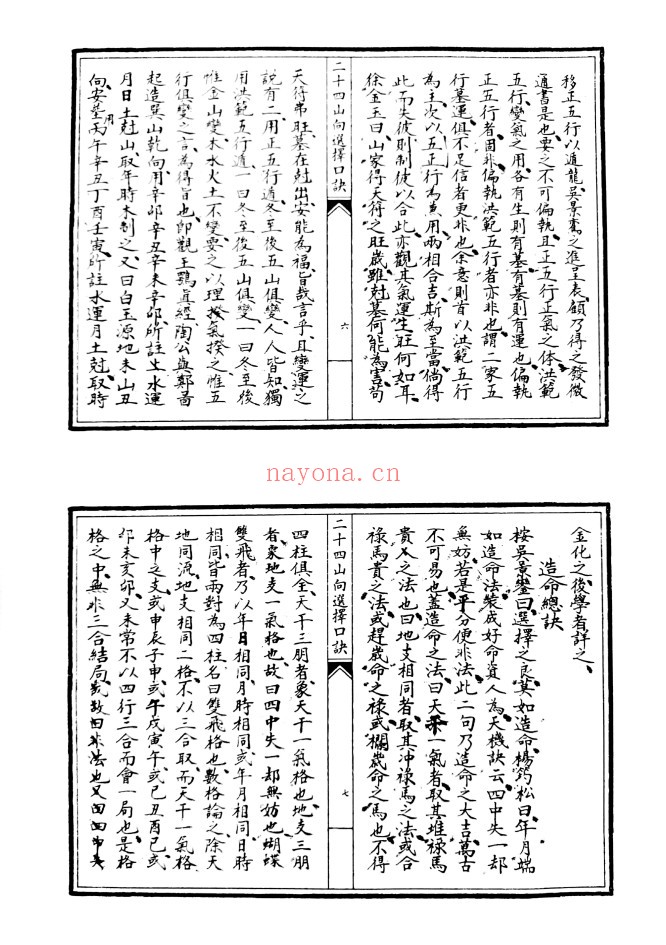 移正五行以遁龍吳景鸞之進呈表頗乃得之發微
通書是也要之不可偏執且正五行正氣之体洪範
五行變氣之用各有生則有墓有墓則有運也偏執
正五行者固非偏執洪範五行者亦非也謂二家五
行墓運俱不足信者更非也余意則首以洪範五行
為主次以五正行為用兩相合吉斯為至當倘得
此而失彼則制彼以合此亦觀其氣運生旺何如耳
徐金玉曰山家得天符之旺歲雖尅墓何能為害苟
二十四山向選擇口訣
六
天符弗旺墓在尅出安能為福旨哉言乎且變運之
說有二用正五行遁冬至後五山俱變人人皆知獨
用洪範五行遁一曰冬至後五山俱變一曰冬至後
惟金山變木水火土不變要之以理揆氣揆之惟五
行俱變之言為得旨也即觀王鶚真經陶公與鄭畐
起造巽山乾向用辛卯辛丑辛未辛卯所註土水運
月日土尅山取年時木制之又曰白玉源地未山丑
向安塋用丙午辛丑丁酉壬寅所註水運月土尅取時
金化之後學者詳之
造命總訣
按吳景鑾曰選擇之良莫如造命楊筠松曰年月端
如造命法裝成好命資人為天機訣云四中失一却
無妨若是平分便非法此二句乃造命之大吉萬古
不可易也蓋造命之法曰天干一氣者取其堆祿馬
貴人之法也曰地支相同者取其冲祿馬之法或合
祿馬貴之法或趕歲命之祿或欄歲命之馬也不得
二十四山向選擇口訣
七
四柱俱全天干三朋者象天干一氣格也地支三朋
者象地支一氣格也故曰四中失一却無妨也蝴蝶
雙飛者乃以年日相同月時相同或年月相同日時
相同皆兩對為四柱名曰雙飛格也數格論之除天
地同流地支相同二格不以三合取而天干一氣格
格中之支或申辰子申或午戌寅午或巳丑酉巳或
卯未亥卯又未常不以四行三合而會一局也是格
格之中無非三合結局哉故曰非法也又曰四中失
nayona.cn